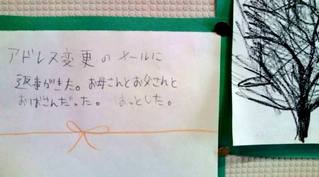 アドレス変更のメールに
返事がきた。お母さんとお父さんと
おばさんだった。ほっとした。